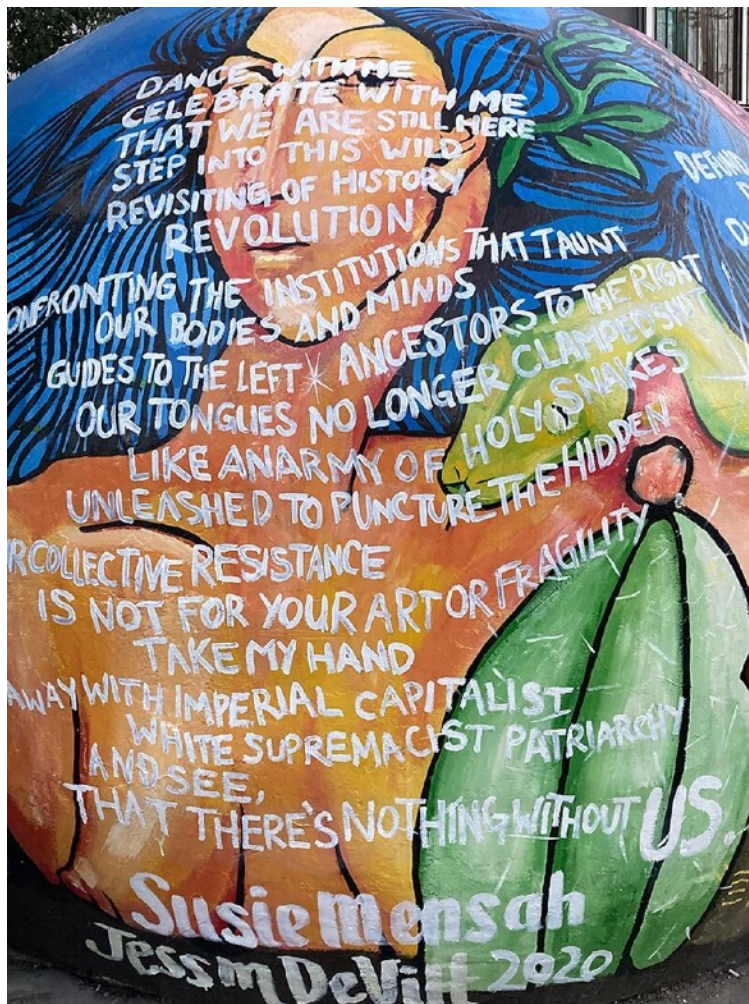 DANCE WITH ME
CELEBRATE WITH ME
THAT WE ARE STILL HERE
STEP INTO THIS WILD
REVISITING OF HISTORY
REVOLUTION
ONFRONTING THE INSTITUTIONS THAT TAUNT
OUR BODIES AND MINDS
GUIDES TO THE LEFT * ANCESTORS TO THE RIGHT
OUR TONGUES NO LONGER CLAMPED SHUT
LIKE AN ARMY OF HOLY SNAKES
UNLEASHED TO PUNCTURE THE HIDDEN
R COLLECTIVE RESISTANCE
IS NOT FOR YOUR ART OR FRAGILITY
TAKE MY HAND
AWAY WITH IMPERIAL CAPITALIST
WHITE SUPREMACIST PATRIARCHY
AND SEE,
THAT THERE'S NOTHING WITHOUT US.
Susie Mensah
Jess m DeVitt 2020